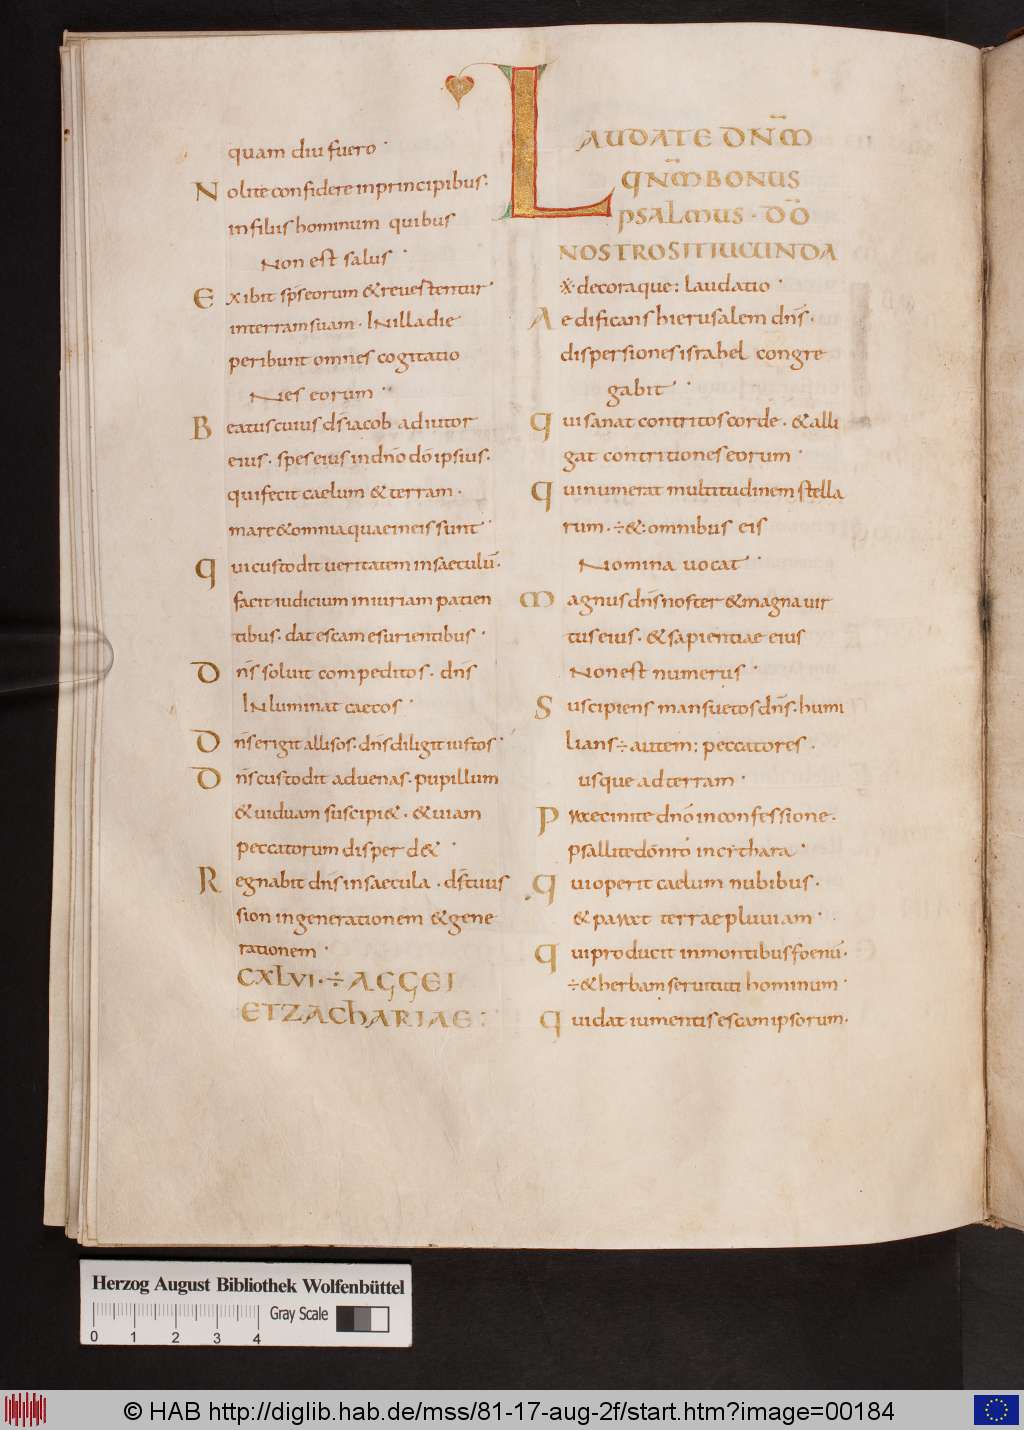 quam diu fuero ·
Nolite confidere in principibus·
in filiis hominum quibus
Non est salus ·
Exibit sps̄ eorum & reuertentur·
in terram suam · IN illa die
peribunt omnes cogitatio
Nes eorum ··
Beatus cuius ds̄ iacob adiutor
eius · spes eius in dn̄o dō ipsius·
qui fecit caelum & terram ·
mare & omnia quae in eis sunt ·
Qui custodit ueritatem in saeculū·
facit iudicium iniuriam patien
tibus· dat escam esurientibus ·
Dn̄s soluit compeditos· dn̄s
INluminat caecos ·
Dn̄s erigit allisos· dn̄s diligit iustos ·
Dn̄s custodit aduenas· pupillum
& uiduam suscipi&· & uiam
peccatorum disperd& ·
Regnabit dn̄s in saecula · ds̄ tuus
sion in generationem & gene
rationem ·
CXLVI · ÷ AGGEI
ET ZACHARIAE :
LAUDATE DN̄M
QN̄M BONUS
PSALMUS · DŌ
NOSTRO SIT IUCUNDA
※ decoraque: laudatio ·
Aedificans hierusalem dn̄s·
dispersiones israhel congre
gabit ·
Qui sanat contritos corde · & alli
gat contritiones eorum ·
Qui numerat multitudinem stella
rum · ÷&: omnibus eis
Nomina uocat ·
Magnus dn̄s noster & magna uir
tus eius · & sapientiae eius
Non est numerus ·
Suscipiens mansuetos dn̄s· humi
lians ÷ autem: peccatores ·
usque ad terram ·
Praecinite dn̄o in confessione·
psallite dō nr̄o in cythara ·
Qui operit caelum nubibus·
& parat terrae pluuiam ·
Qui producit in montibus foenū·
÷& herbam seruituti hominum ·
Qui dat iumentis escam ipsorum·
Herzog August Bibliothek Wolfenbüttel
Gray Scale
0 1 2 3 4
© HAB http://diglib.hab.de/mss/81-17-aug-2f/start.htm?image=00184